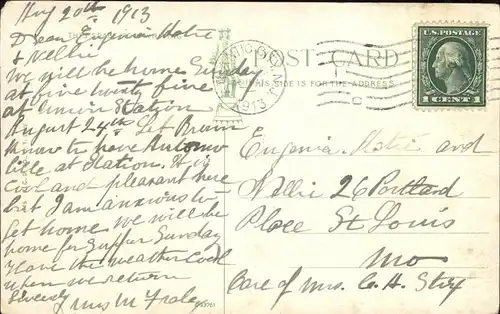 Aug 20th 1913
Dear Eugenia Motie
& Nellie
We will be home Sunday
at five twenty five
at Union Station
August 24th Let Brown
know to have Automo
bile at Station. It is
Cool and pleasant here
but I am anxious to
get home. We will be
home for supper Sunday
Have the weather Cool
when we return
Sincerely
POST CARD
THIS SIDE IS FOR THE ADDRESS
1913
1 CENT 1
Eugenia Motie and
Nellie 26 Portland
Place St Louis
Mo
Care of Mrs. C. H.